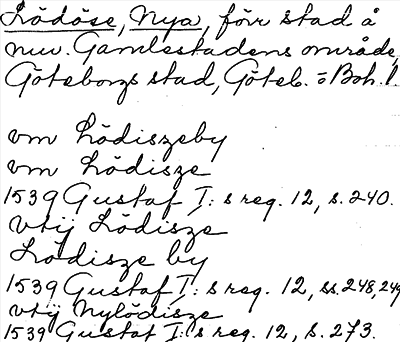 Lödöse, Nya, förr stad å
nuv. Gamlestadens område,
Göteborgs stad, Göteb. o Boh. l.
vm Lödiszeby
vm Lödisze
1539 Gustaf I: s reg. 12, s. 240.
vtij Lödisze
Lödisze by
1539 Gustaf I: s reg. 12, ss. 248, 249
vtij Nylödisze
1539 Gustaf I: s reg. 12, s. 273.